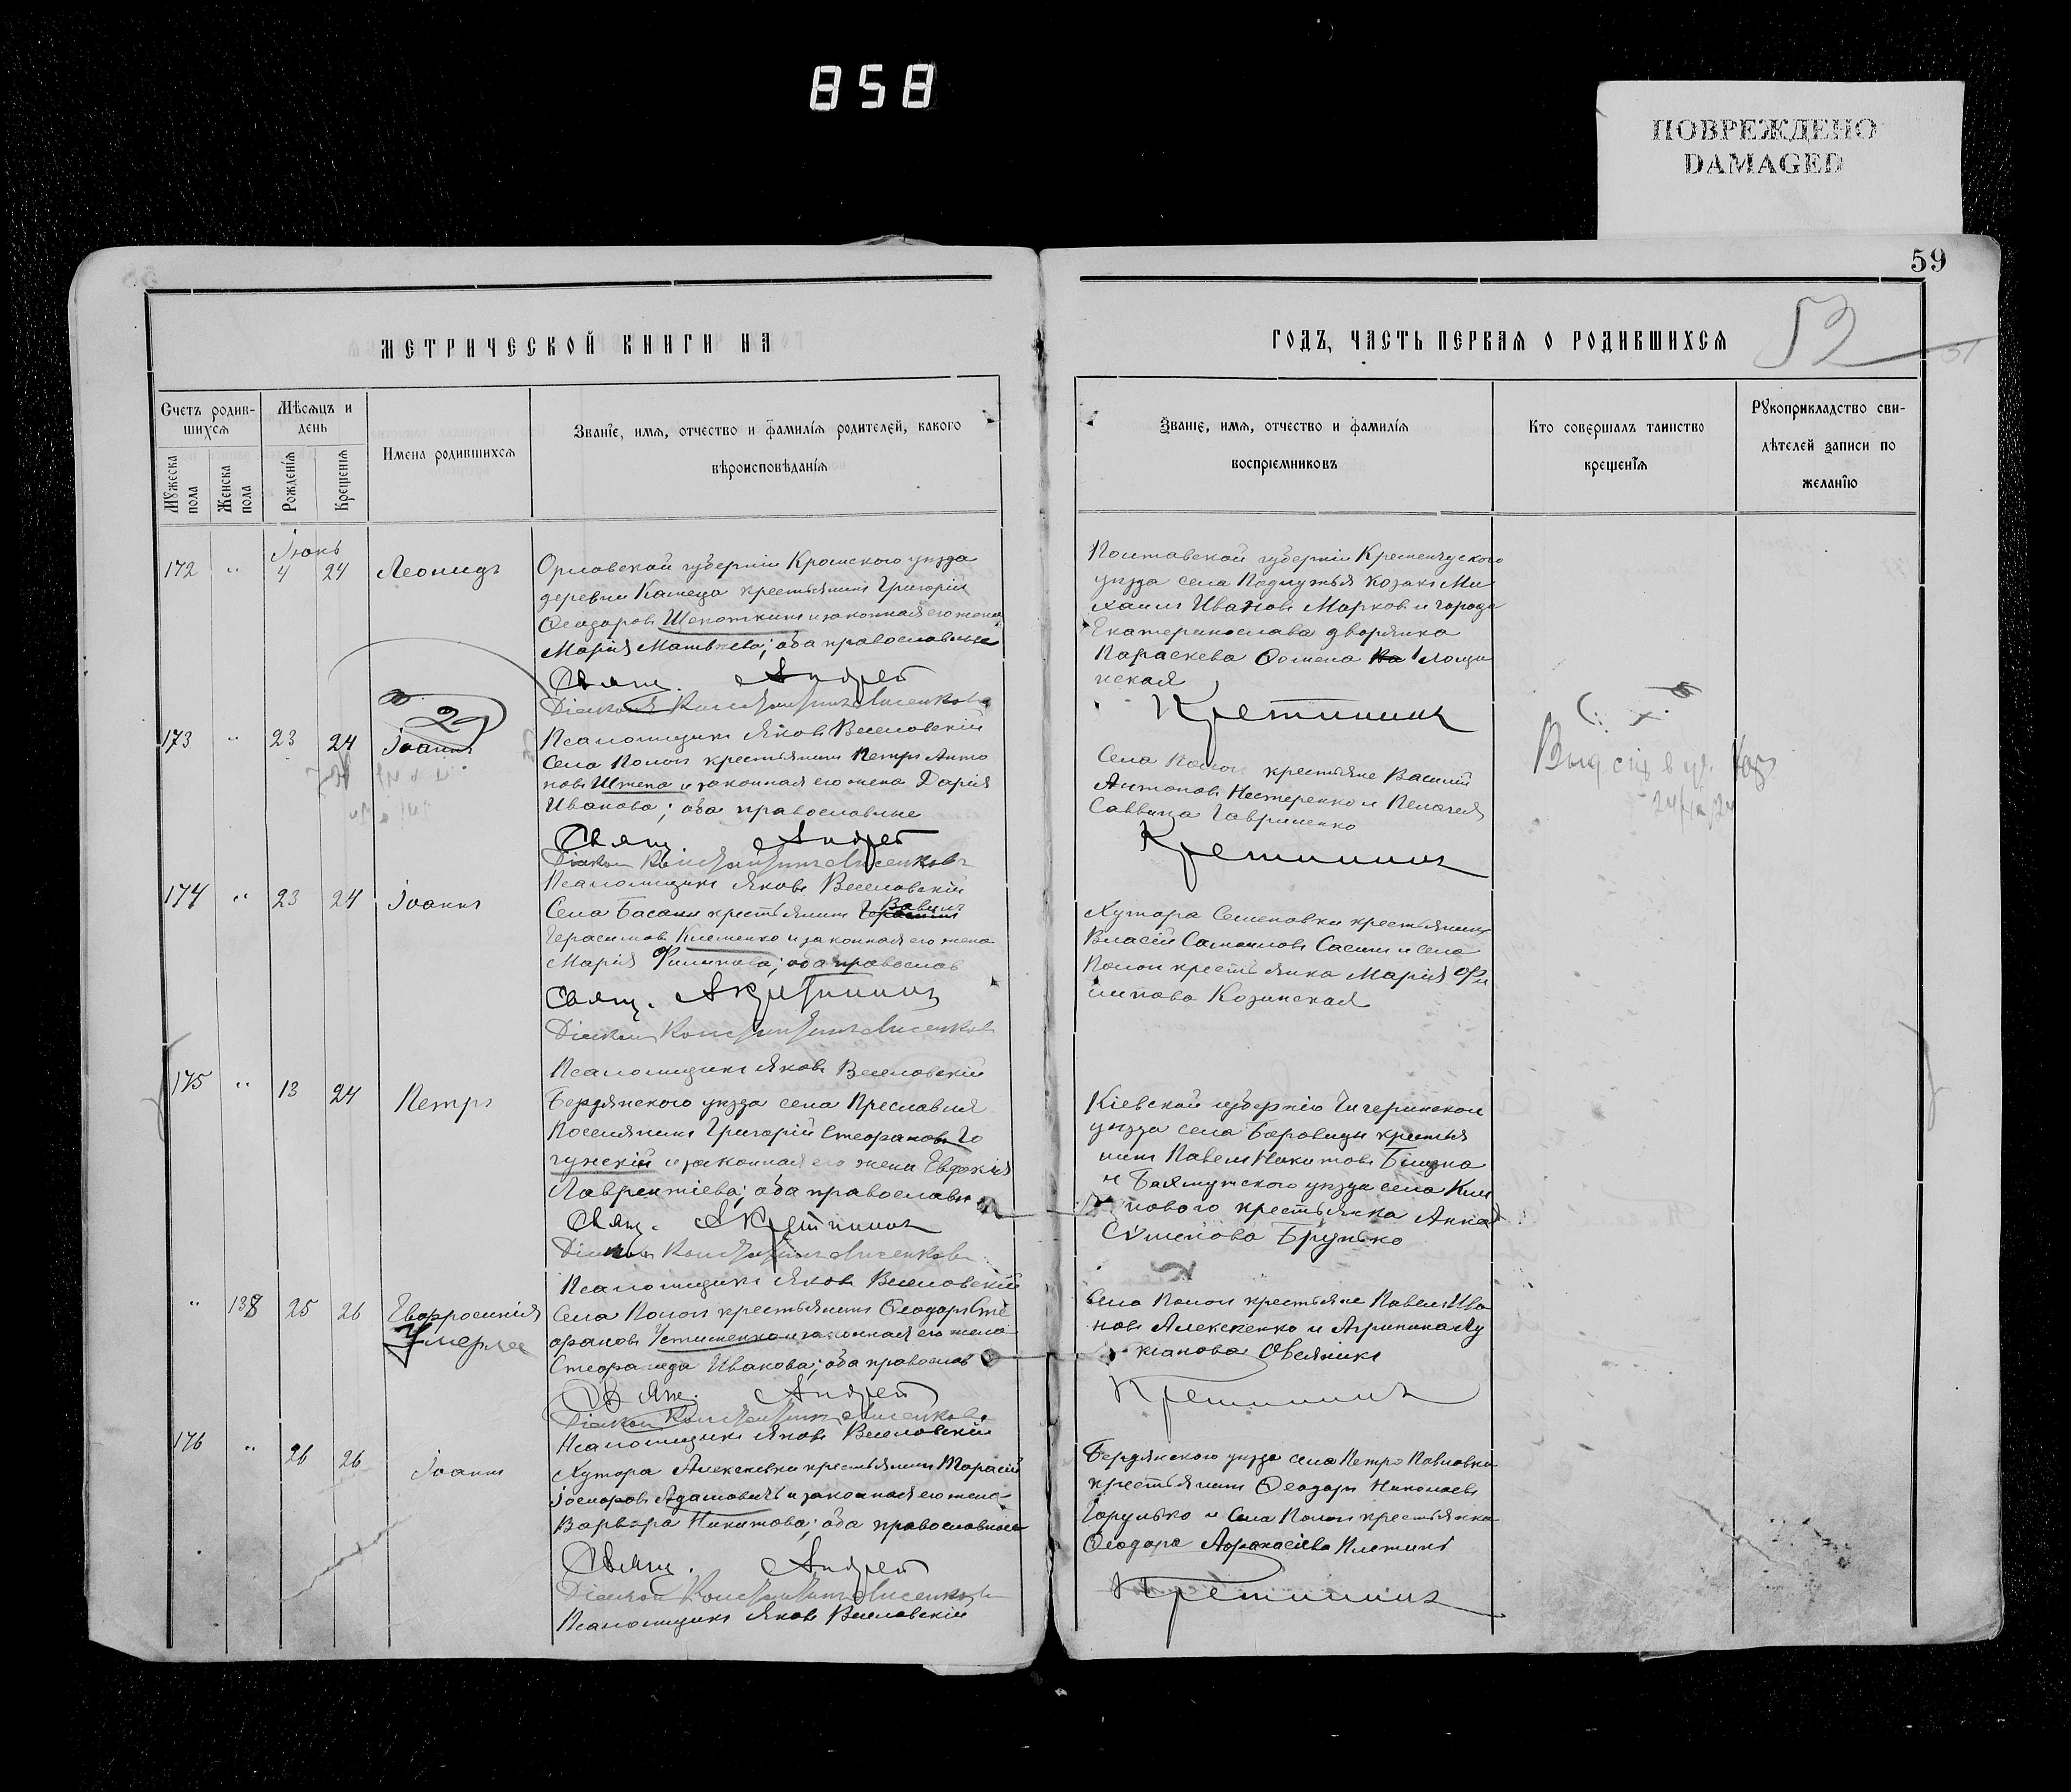 858
ПОВРЕЖДЕНО
DAMAGED
59
52
МЕТРИЧЕСКОЙ КНИГИ НА
ГОДЪ, ЧАСТЬ ПЕРВАЯ О РОДИВШИХСЯ
Счетъ родив-
шихся
Мѣсяцъ и
день
Мужеска
пола
Женска
пола
Рожденія
Крещенія
Имена родившихся
Званіе, имя, отчество и фамилія родителей, какого
вѣроисповѣданія
Званіе, имя, отчество и фамилія
воспріемниковъ
Кто совершалъ таинство
крещенія
Рукоприкладство сви-
дѣтелей записи по
желанію
Іюнь
172 " 4 24 Леонидъ
Орловской губерніи Кромского уѣзда
деревни крестьянинъ Григорій
Ѳеодоровъ Щекоткинъ и законная его жена
Марія Матвѣева; оба православные
Свящ. Андрей
Діаконъ Константинъ Лисенковъ
Псаломщикъ Яковъ Веселовскій
Полтавской губерніи Кременчугского
уѣзда села козакъ Ми
хаилъ Ивановъ Марковъ и города
Екатеринослава дворянка
Параскева
нская
Кретининъ
2
173 " 23 24 Іоаннъ
Села Пологъ крестьянинъ Петръ Анто
новъ Шкепа и законная его жена Дарія
Иванова; оба православные
Свящ. Андрей
Діаконъ Константинъ Лисенковъ
Псаломщикъ Яковъ Веселовскій
Села Пологъ крестьяне Василій
Антоновъ Нестеренко и Пелагея
Саввина Гавриленко
Кретининъ
174 " 23 24 Іоаннъ
Села Басани крестьянинъ Вавилъ
Герасимовъ Клименко и законная его жена
Марія Филипова; оба православ
Свящ. А Кретининъ
Діаконъ Константинъ Лисенковъ
Псаломщикъ Яковъ Веселовскій
Хутора Семеновки крестьянинъ
Власій Самоиловъ и села
Пологъ крестьянка Марія Фи
липова Козинская
175 " 13 24 Петръ
Бердянского уѣзда села Преславля
Поселянинъ Григорій Стефановъ Го
гунскій и законная его жена Евдокія
Лаврентіева; оба православн
Свящ. А Кретининъ
Діаконъ Константинъ Лисенковъ
Псаломщикъ Яковъ Веселовскій
Кіевской губерніи Чигеринского
уѣзда села Боровицы крестья
нинъ Павелъ Никитовъ
и Бахмутского уѣзда села
нового крестьянка Анна
Брунько
" 138 25 26 Евфросинія
Умерла
Села Пологъ крестьянинъ Ѳеодоръ Сте
фановъ Устименко и законная его жена
Стефанида Иванова; оба православ
Свящ. Андрей
Діаконъ Константинъ Лисенковъ
Псаломщикъ Яковъ Веселовскій
Села Пологъ крестьяне Павелъ Ива
новъ Алексеенко и Агрипина Лу
кіанова Овсяникъ
Кретининъ
176 " 26 26 Іоаннъ
Хутора Алексеевки крестьянинъ Тарасій
Іосифовъ Адамовичъ и законная его жена
Варвара Никитова; оба православные
Свящ. Андрей
Діаконъ Константинъ Лисенковъ
Псаломщикъ Яковъ Веселовскій
Бердянского уѣзда села Петро Павловки
крестьянинъ Ѳеодоръ Николаевъ
Горулько и Села Пологъ крестьянка
Ѳеодора Афанасіева
Кретининъ